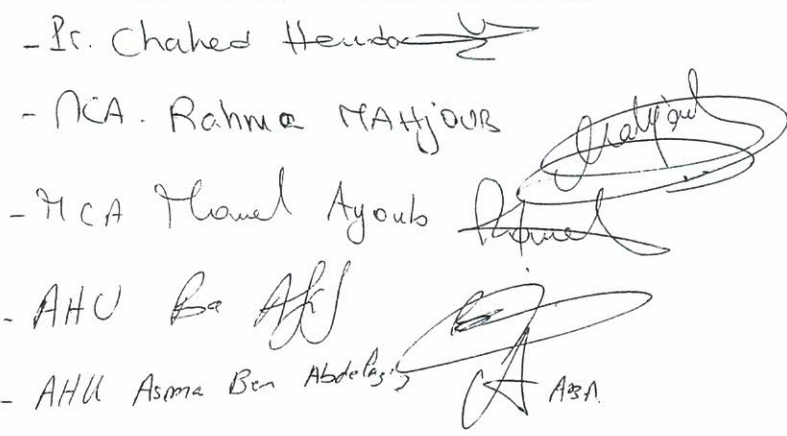 - Pr. Chahed Henda
- MCA. Rahma MAHjOUB Mahjoub
- MCA Manel Ayoub Manel
- AHU
- AHU Asma Ben Abdelaziz ABA.